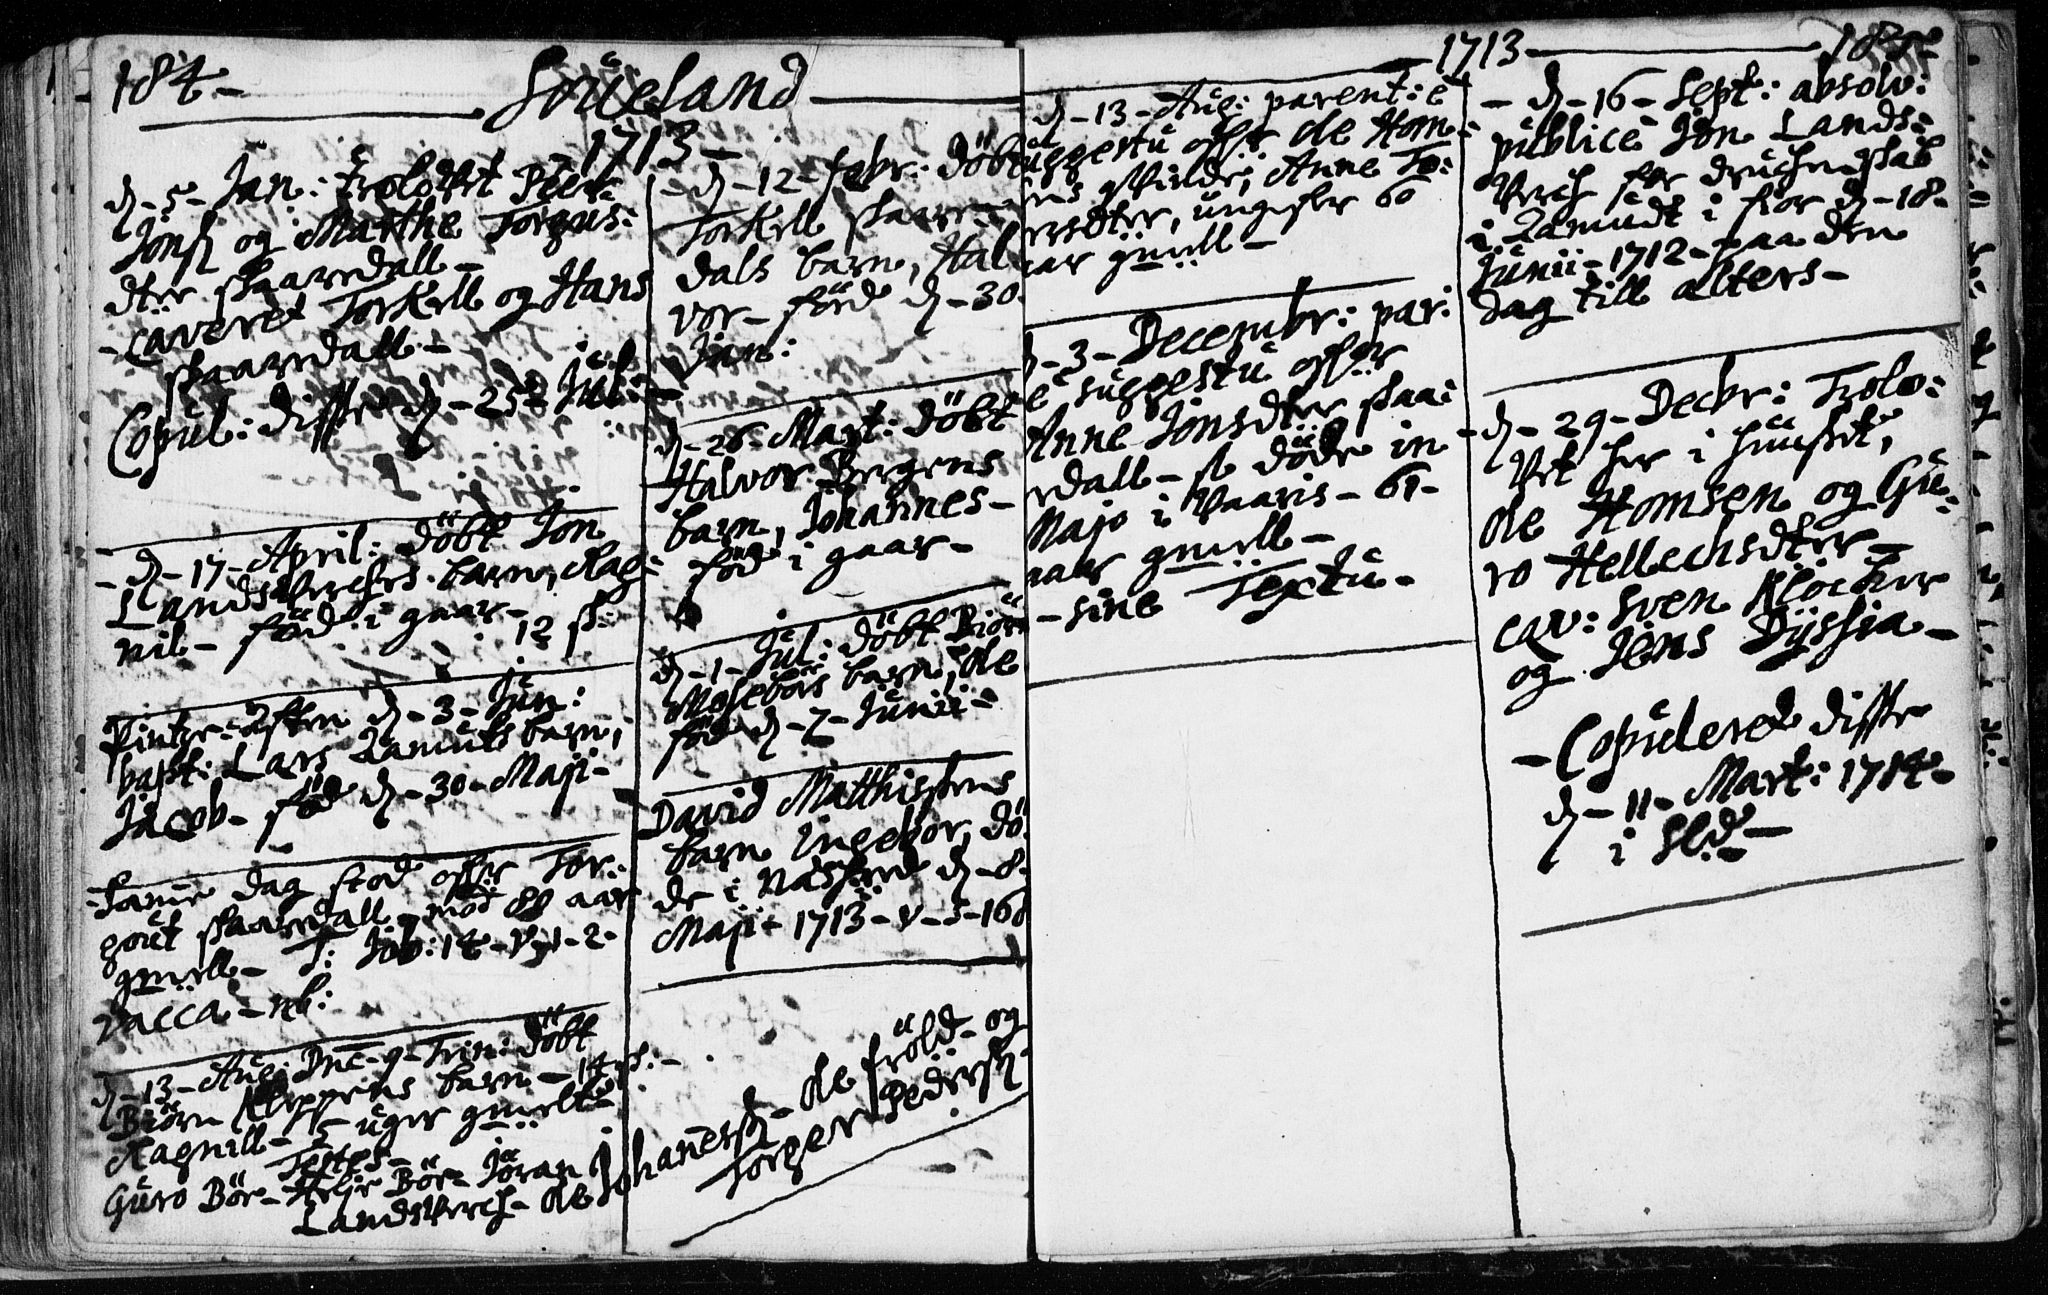 184-
Soüeland
1713-
d-5-Jan: troloffvet Peer
Jons: og Marthe Torgus:
dter skaardall-
- caveret Torkell og Hans
skaardall-
Copul: disse d-25-Jul:-
- d-17-April: döbt Jon
Landsverchs barn, Rag:
nil- föd i gaar-
12 s:
Pintze-afften d-3-Jun:
bapt: Lars Zamuts barn,
Jacob- föd d-30-Maji-
-Samme dag stod offver Tor:
gout skaardall- mod 88 aar
gmell- T: Job: 14-v-1-2-
vacca-
d-13-Aug: Dnc-9-Trin: döbt
Biörn Kleppens barn-14 s:-
Ragnill-5 uger gmelt-
Testes-
Guro Bör-Helje Bör-Jöran
Landsverch-Ole Johanness-Ole fröld-og
Torger Peders:
-d-12-febr: döbt
Torkell skaar-
dals barn, Hal
vor- föd d-30-
Jan:
d-26-Mart: döbt
Halvor Bergens
barn, Johannes-
föd i gaar-
d-1-Jul: döbt Biör
Moseböes barn, Ole
föd d-7-Junii-
David Matthissens
barn Ingebor, dö
de i d-8-
Maji-1713-
1713
185
d-13-Aug: parent: e
suggestu offver Ole Hom-
sens qvinde, Anne To:
resdter, ungefer 60
aar gmell-
d-3-Decembr: par:
e suggestu offver
Anne Jonsdter skaa:
rdall- döde in
Majo i vaaris-61-
aar gmell-
-sine Textu-
- d-16-Sept: absolv:
publice Jon Lands-
verch for druchenskab
i Zamudt i fior d-18-
Junii-1712-paa den
dag till alters-
-d-29-Decbr: Trolo:
vet her i huuset,
Ole Homsen og Gu-
ro Hellechsdter-
cav: Sven Klocker
og Jens Dyssia-
-Copuleret disse
d-11-Mart: 1714-
i Sld-